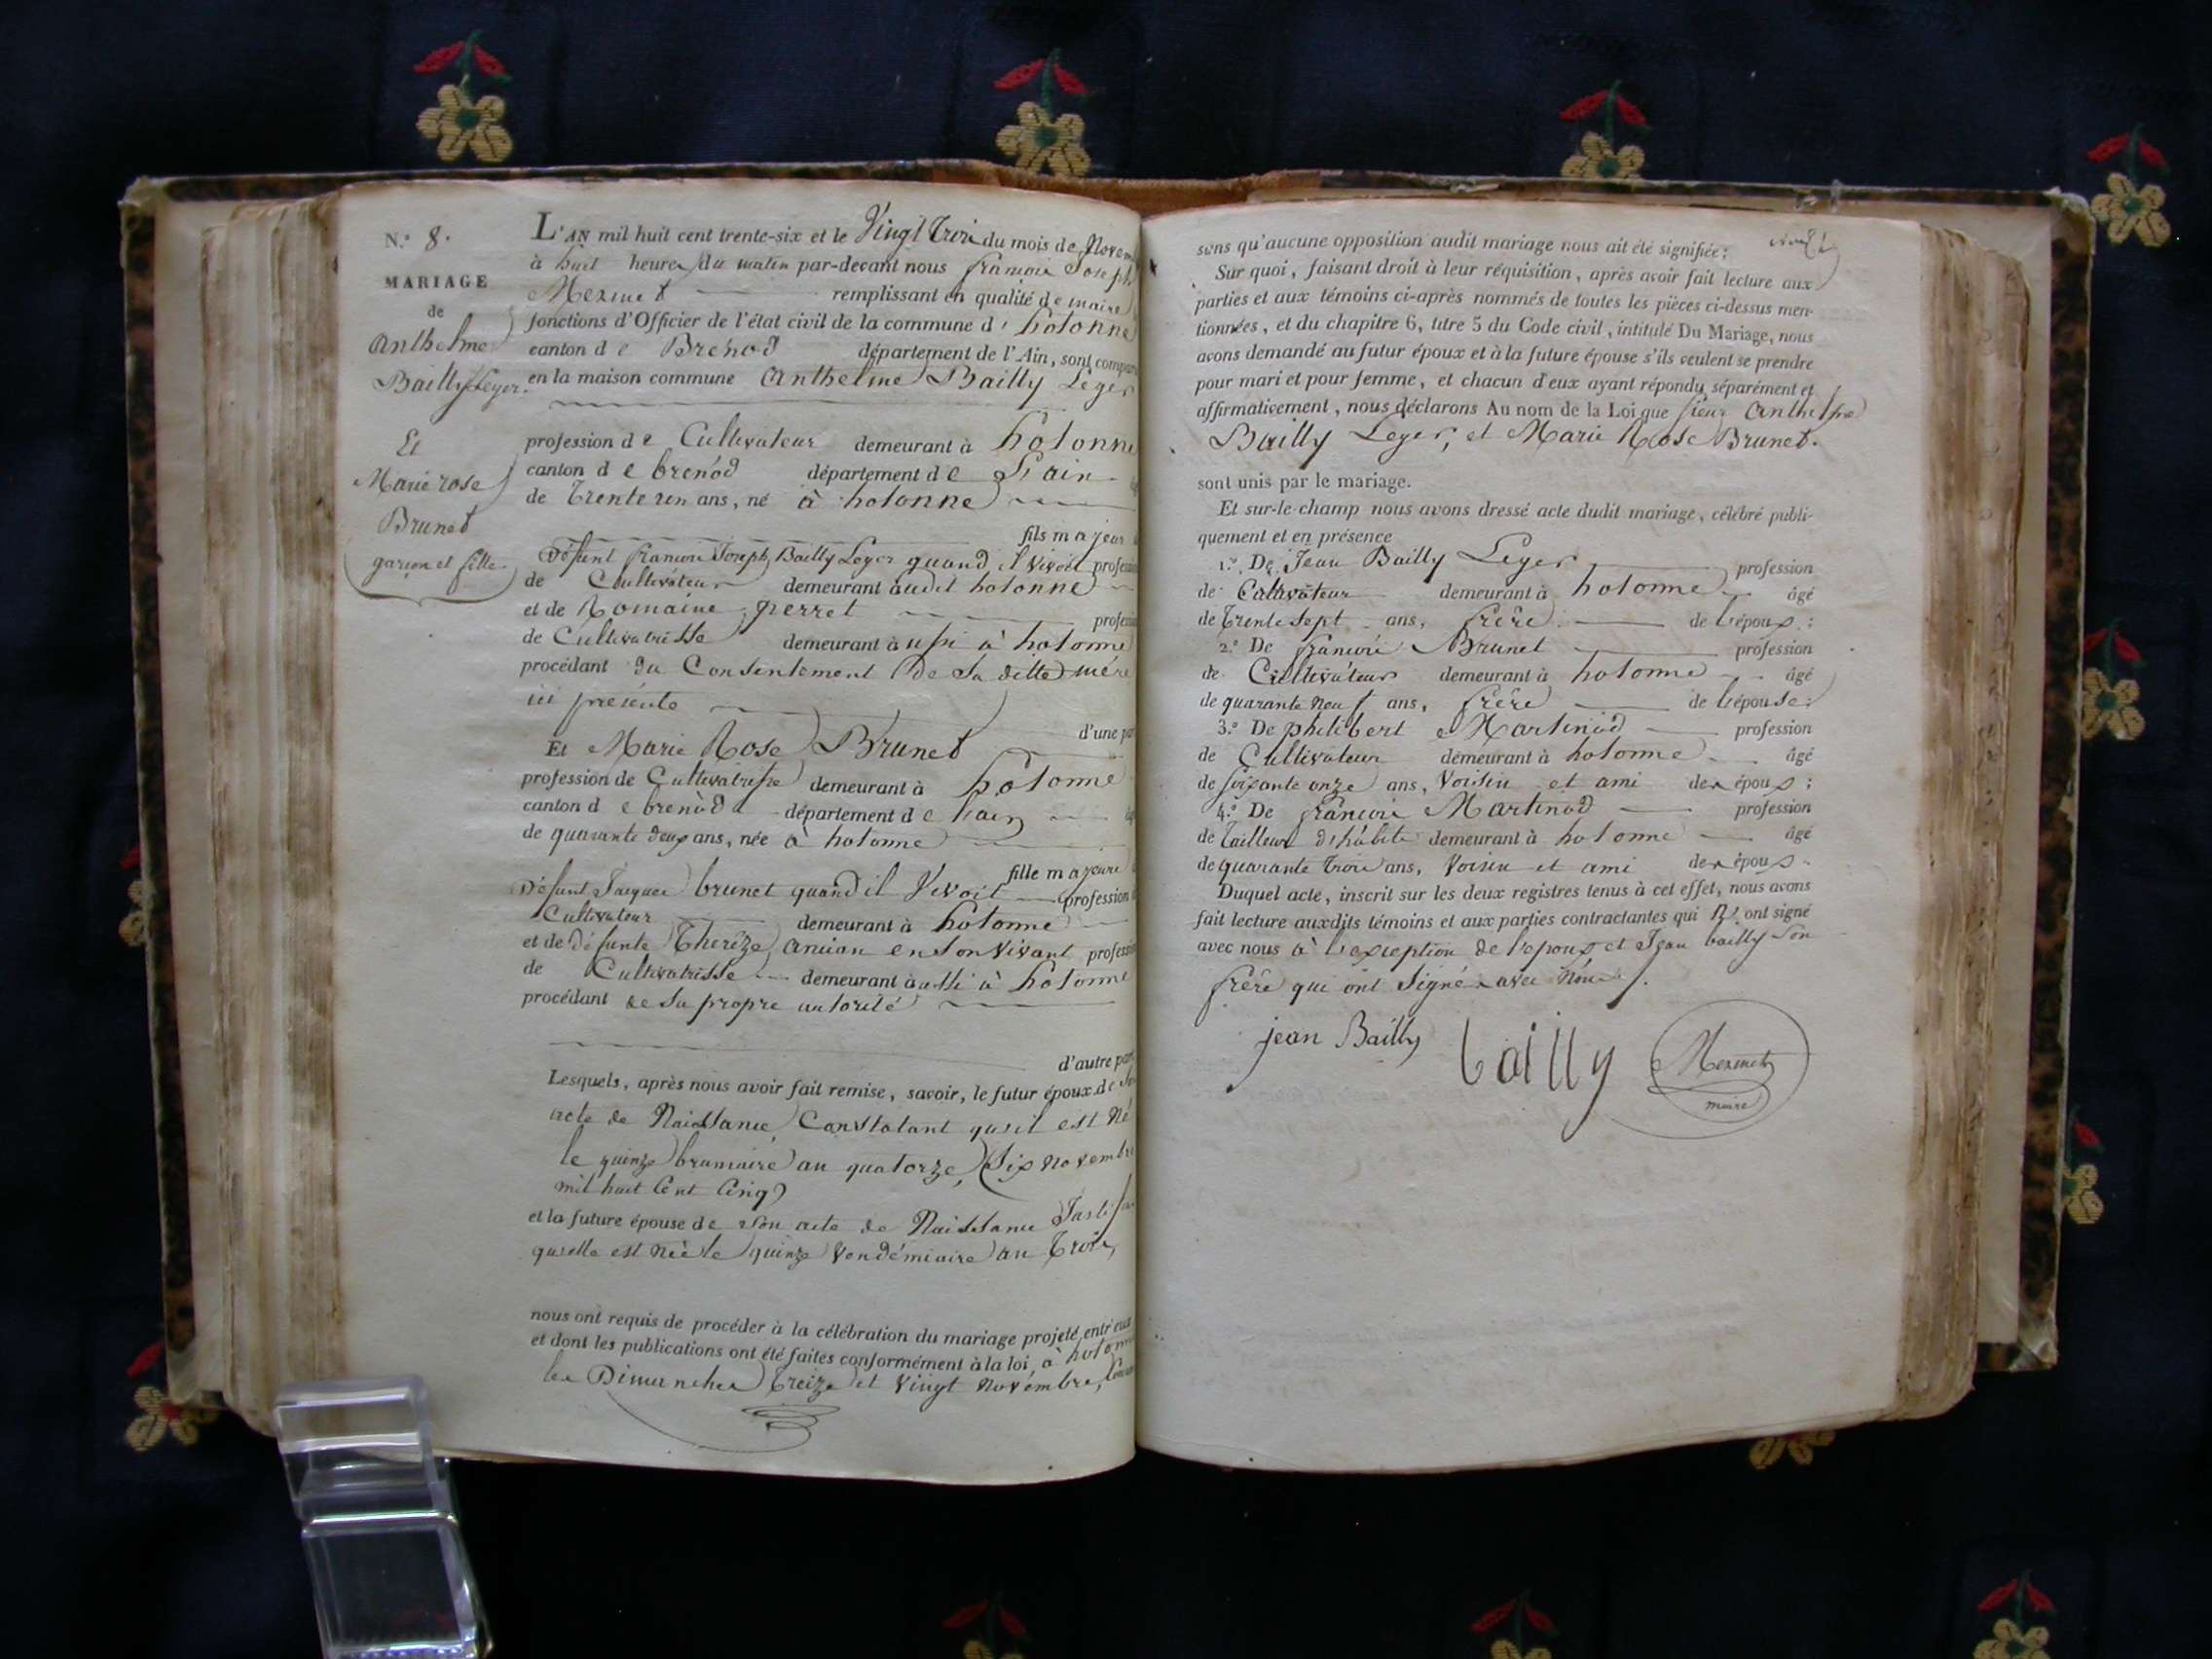 N.º 8.
MARIAGE
de
Anthelme
Bailly Leger.
Et
Marie rose
Brunet
garçon et fille
L'AN mil huit cent trente-six et le Vingt Trois du mois de Novem
à huit heures du matin par-devant nous françois Joseph
Mermet remplissant en qualité de maire
fonctions d'Officier de l'état civil de la commune d' hotonne
canton de Brénod département de l'Ain, sont compar
en la maison commune Anthelme Bailly Leger
profession de Cultivateur demeurant à hotonne
canton de brenod département de L'ain
de Trente un ans, né à hotonne
fils majeur
Défunt françois Joseph Bailly Leger quand il vivoit profession
de Cultivateur demeurant audit hotonne
et de Romaine perret profession
de Cultivatrisse demeurant aussi à hotonne
procédant du Consentement de Sa ditte mére
ici présente
d'une par
Et Marie Rose Brunet
profession de Cultivatrisse demeurant à hotonne
canton de brenòd département de l'ain
de quarante deux ans, née à hotonne
fille majeure
Défunt Jacques brunet quand il Vivoit profession
Cultivateur demeurant à hotonne
et de défunte Thereze ancian en Son Vivant profession
de Cultivatrisse demeurant aussi à hotonne
procédant de Sa propre autorité
d'autre part
Lesquels, après nous avoir fait remise, savoir, le futur époux de Son
acte de Naissance Constatant qu'il est Né
le quinze brumaire an quatorze, (Six novembre
mil huit Cent Cinq)
et la future épouse de son acte de Naissance
qu'elle est Née le quinze Vendémiaire an Trois,
nous ont requis de procéder à la célébration du mariage projeté entr'eux
et dont les publications ont été faites conformément à la loi, à hotonne
les Dimanches Treize et Vingt Novembre,
sans qu'aucune opposition audit mariage nous ait été signifiée;
Sur quoi, faisant droit à leur réquisition, après avoir fait lecture aux
parties et aux témoins ci-après nommés de toutes les pièces ci-dessus men-
tionnées, et du chapitre 6, titre 5 du Code civil, intitulé Du Mariage, nous
avons demandé au futur époux et à la future épouse s'ils veulent se prendre
pour mari et pour femme, et chacun d'eux ayant répondu séparément et
affirmativement, nous déclarons Au nom de la Loi que sieur Anthelme
Bailly Leger, et Marie Rose Brunet.
sont unis par le mariage.
Et sur-le-champ nous avons dressé acte dudit mariage, célébré publi-
quement et en présence
1.º De Jean Bailly Leger profession
de Cultivateur demeurant à hotonne âgé
de Trente Sept ans, frère de l'époux;
2.º De françois Brunet profession
de Cultivateur demeurant à hotonne âgé
de quarante neuf ans, frère de l'épouse;
3.º De philibert Martinod profession
de Cultivateur demeurant à hotonne âgé
de soixante onze ans, Voisin et ami des époux;
4.º De françois Martinod profession
de Tailleur d'habits demeurant à hotonne âgé
de quarante Trois ans, Voisin et ami des époux.
Duquel acte, inscrit sur les deux registres tenus à cet effet, nous avons
fait lecture auxdits témoins et aux parties contractantes qui N'ont signé
avec nous à l'exception de l'epoux et Jean bailly Son
frère qui ont Signé avec Nous.
jean Bailly bailly Mermet
maire